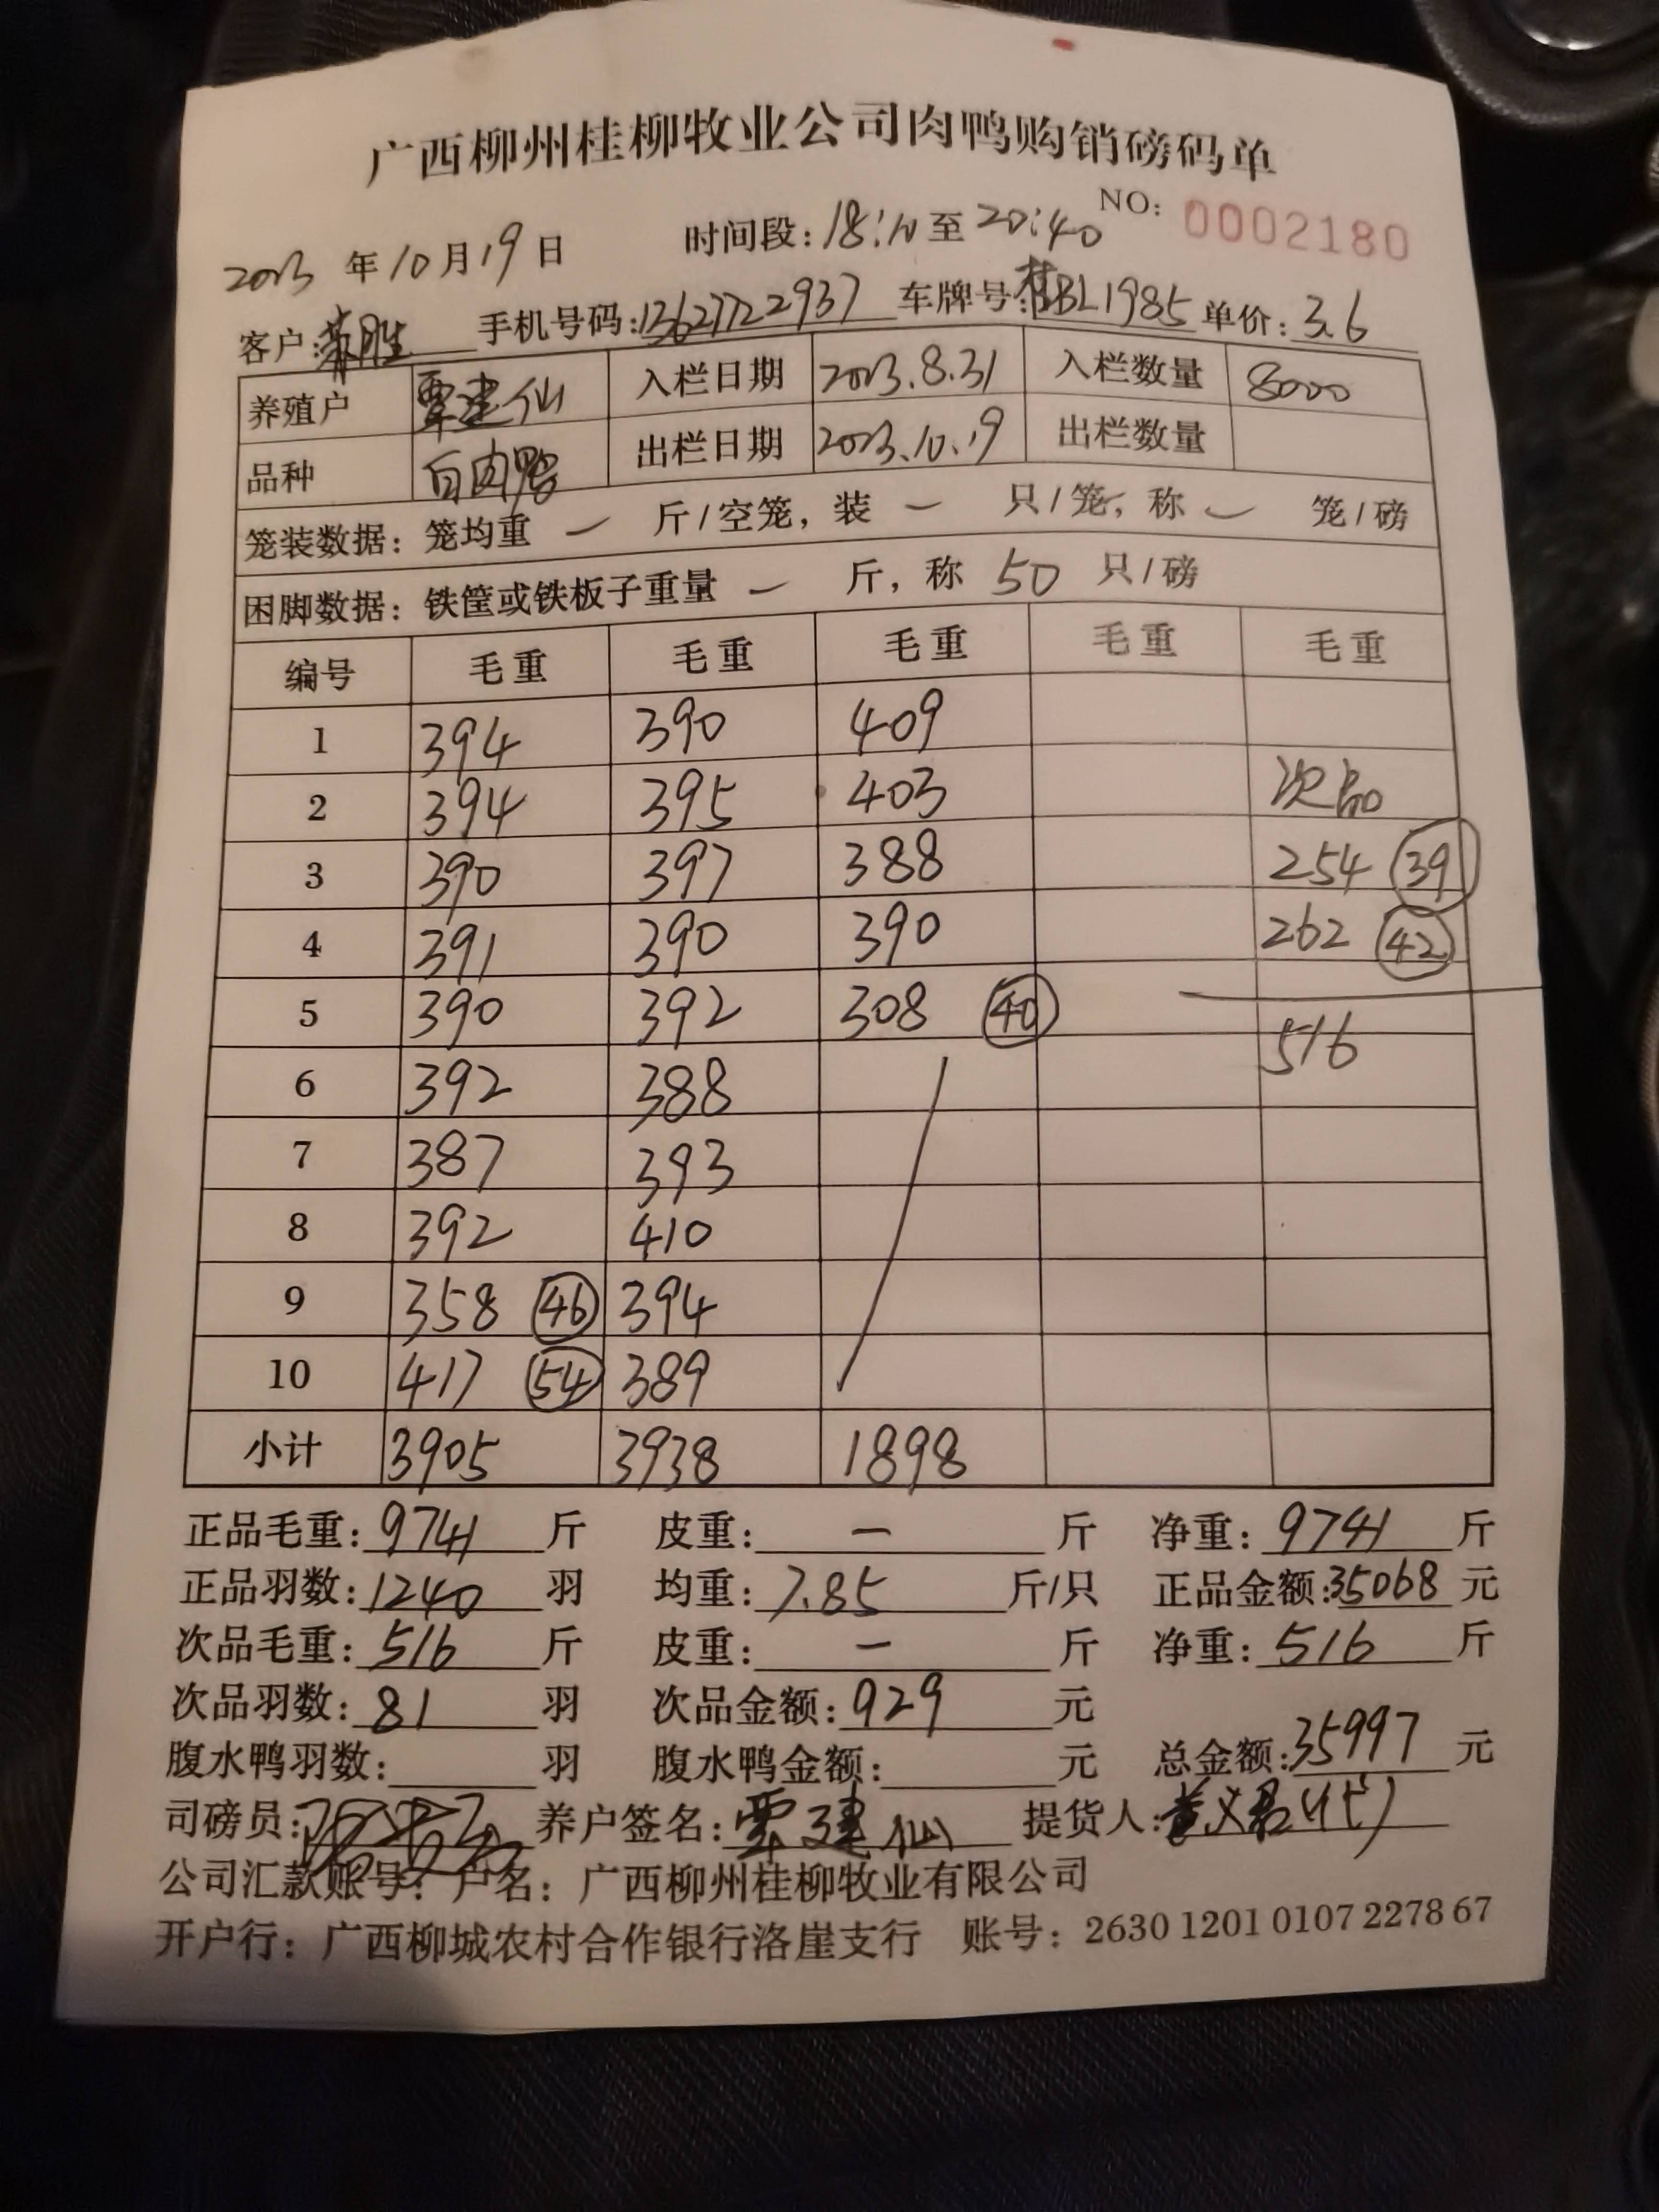 广西柳州桂柳牧业公司肉鸭购销磅码单
NO: 0002180
2023 年 10 月 19 日 时间段: 18:10 至 20:40
客户: 胜 手机号码: 13627722937 车牌号: 桂BL1985 单价: 3.6
养殖户 覃建仙 入栏日期 2023.8.31 入栏数量 8000
品种 白肉鸭 出栏日期 2023.10.19 出栏数量
笼装数据: 笼均重 — 斤/空笼, 装 — 只/笼, 称 — 笼/磅
困脚数据: 铁筐或铁板子重量 — 斤, 称 50 只/磅
编号 毛重 毛重 毛重 毛重 毛重
1 394 390 409
2 394 395 403 次品
3 390 397 388 254 39
4 391 390 390 262 42
5 390 392 308 40 516
6 392 388
7 387 393
8 392 410
9 358 46 394
10 417 54 389
小计 3905 3938 1898
正品毛重: 9741 斤 皮重: — 斤 净重: 9741 斤
正品羽数: 1240 羽 均重: 7.85 斤/只 正品金额: 35068 元
次品毛重: 516 斤 皮重: — 斤 净重: 516 斤
次品羽数: 81 羽 次品金额: 929 元
腹水鸭羽数: 羽 腹水鸭金额: 元 总金额: 35997 元
司磅员: 养户签名: 覃建仙 提货人: (代)
公司汇款账号: 户名: 广西柳州桂柳牧业有限公司
开户行: 广西柳城农村合作银行洛崖支行 账号: 2630 1201 0107 2278 67